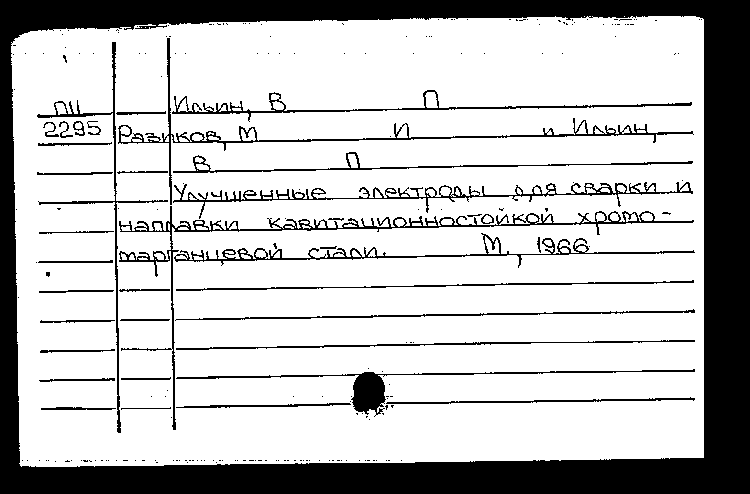 ПЦ Ильин, В П
2295 Разиков, М И и Ильин,
В П
Улучшенные электроды для сварки и
наплавки кавитационностойкой хромо-
марганцевой стали. М, 1966